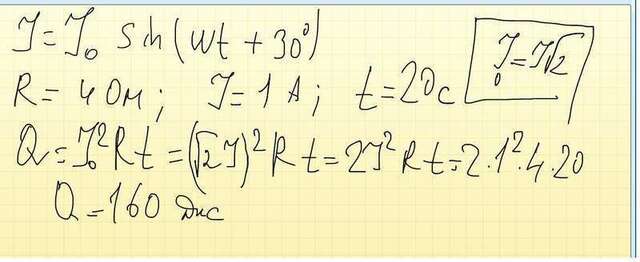 J = J₀ sin(wt + 30°)
R = 4 Ом; J = 1 А; t = 20 с J₀ = J√2
Q = J₀²Rt = (√2 J)² Rt = 2J²Rt = 2·1²·4·20
Q = 160 Дж